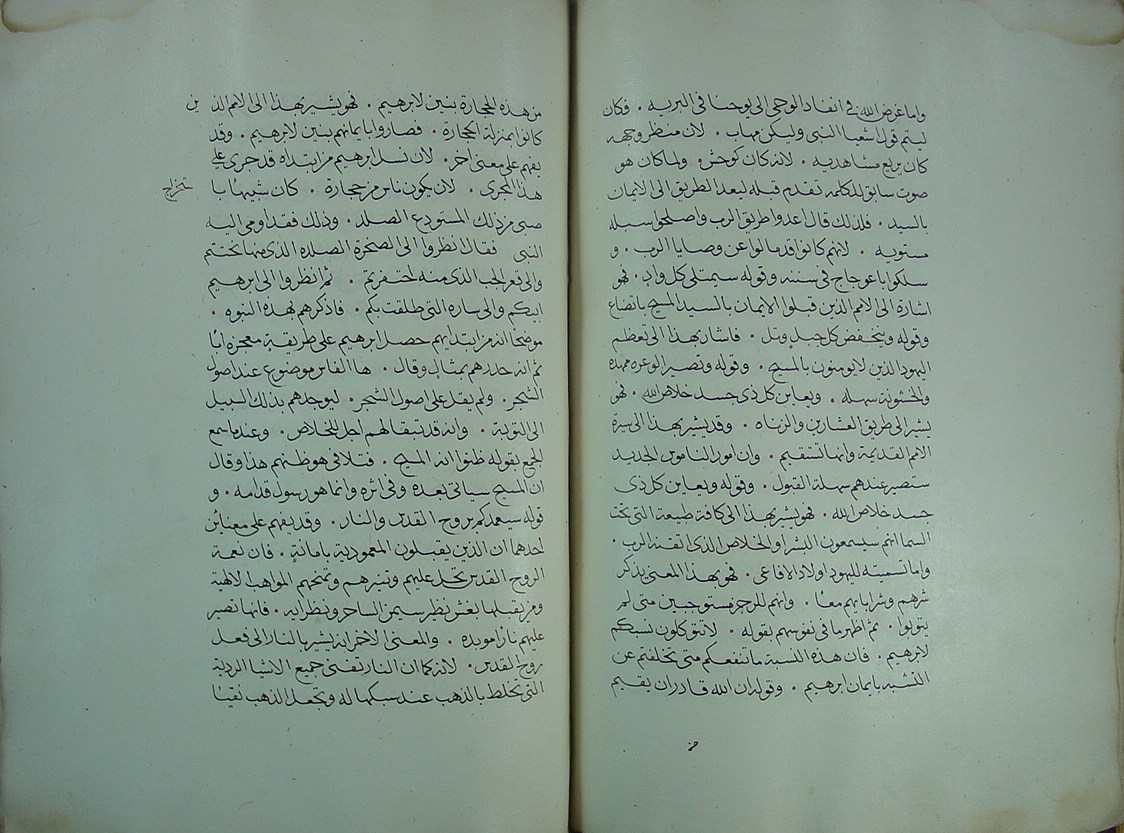 واما غرض الله في انفاد الوحي الى يوحنا في البريه . فكان
ليتم قول اشعيا النبي وليكن مهاب . لان منظر وجهه
كان يريع مشاهديه . لانه كان كوحش . ولما كان هو
صوت سابق للكلمه تقدم قبله ليعد الطريق الى الايمان
بالسيد . فلذلك قال اعدوا طريق الرب واصلحوا سبله
مستويه . لانهم كانوا قد مالوا عن وصايا الرب . و
سلكوا باعوجاج في سننه وقوله سيمتلي كل واد . فهو
اشارة الى الامم الذين قبلوا الايمان بالسيد المسيح باتضاع
وقوله وينخفض كل جبل وتل . فاشار بهذا الى تعظم
اليهود الذين لا يومنون بالمسيح . وقوله وتصير الوعره ممهده
والخشونة سهله . ويعاين كل ذي جسد خلاص الله . فهو
يشير الى طريق العشارين والزناه . وقد يشير بهذا الى سيرة
الامم القديمة وانها تستقيم . وان امور الناموس الجديد
ستصير عندهم سهلة القبول . وقوله ويعاين كل ذي
جسد خلاص الله . فهو يشير بهذا الى كافة طبيعة التي تحت
السما انهم سيسمعون البشرا والخلاص الذي اتقنه الرب .
واما تسميته لليهود اولاد الافاعي . فهو بهذا المعنى يذكر
شرهم وشر ابايهم معا . وانهم للرجز مستوجبين متى لم
يتوبوا . ثم اظهر ما في نفوسهم بقوله . لا تتوكلون نسبكم
لابرهيم . فان هذه النسبة ما تنفعكم متى تخلفتم عن
التشبه بايمان ابرهيم . وقوله ان الله قادر ان يقيم
من هذه الحجارة بنين لابرهيم . فهو يشير بهذا الى الامم الذين
كانوا بمنزلة الحجارة . فصاروا بايمانهم بنين لابرهيم . وقد
يفهم على معنى اخر . لان نسل ابرهيم من ابتداه قد جرى على
هذا المجرى . لان يكون ناس من حجارة . كان شبيها با
ستخراج
صبي من ذلك المستودع الصلد . وذلك فقد اومى اليه
النبي فقال انظروا الى الصخرة الصلده الذي منها نحتتم
والى قعر الجب الذي منه احتفرتم . ثم انظروا الى ابرهيم
ابيكم والى ساره التي طلقت بكم . فاذكرهم بهذه النبوه .
موضحا انه من ابتدايهم حصل ابرهيم على طريقة معجزه ابا
ثم انه حددهم بمثال وقال . ها الفاس موضوع عند اصول
الشجر . ولم يقل على اصول الشجر . ليوجدهم بذلك السبيل
الى التوبة . وانه قد تبقا لهم اجل للخلاص . وعندما سمع
الجمع بقوله ظنوا انه المسيح . فتلافى هو ظنهم هذا وقال
ان المسيح سياتي بعده وفي اثره وانما هو رسول قدامه . و
قوله سيعمدكم بروح القدس والنار . وقد يفهم على معنيين
احدهما ان الذين يقبلون المعمودية بامانة . فان نعمة
الروح القدس تحل عليهم وتنيرهم وتمنحهم المواهب الالهية
ومن يقبلها بغش نظر سيمن الساحر ونظرايه . فانها تصير
عليهم نارا موبده . والمعنى الاخر انه يشير بالنار الى فعل
روح القدس . لانه كما ان النار تفني جميع الاشيا الردية
التي تختلط بالذهب عند سبكها له وتجعل الذهب نقيا